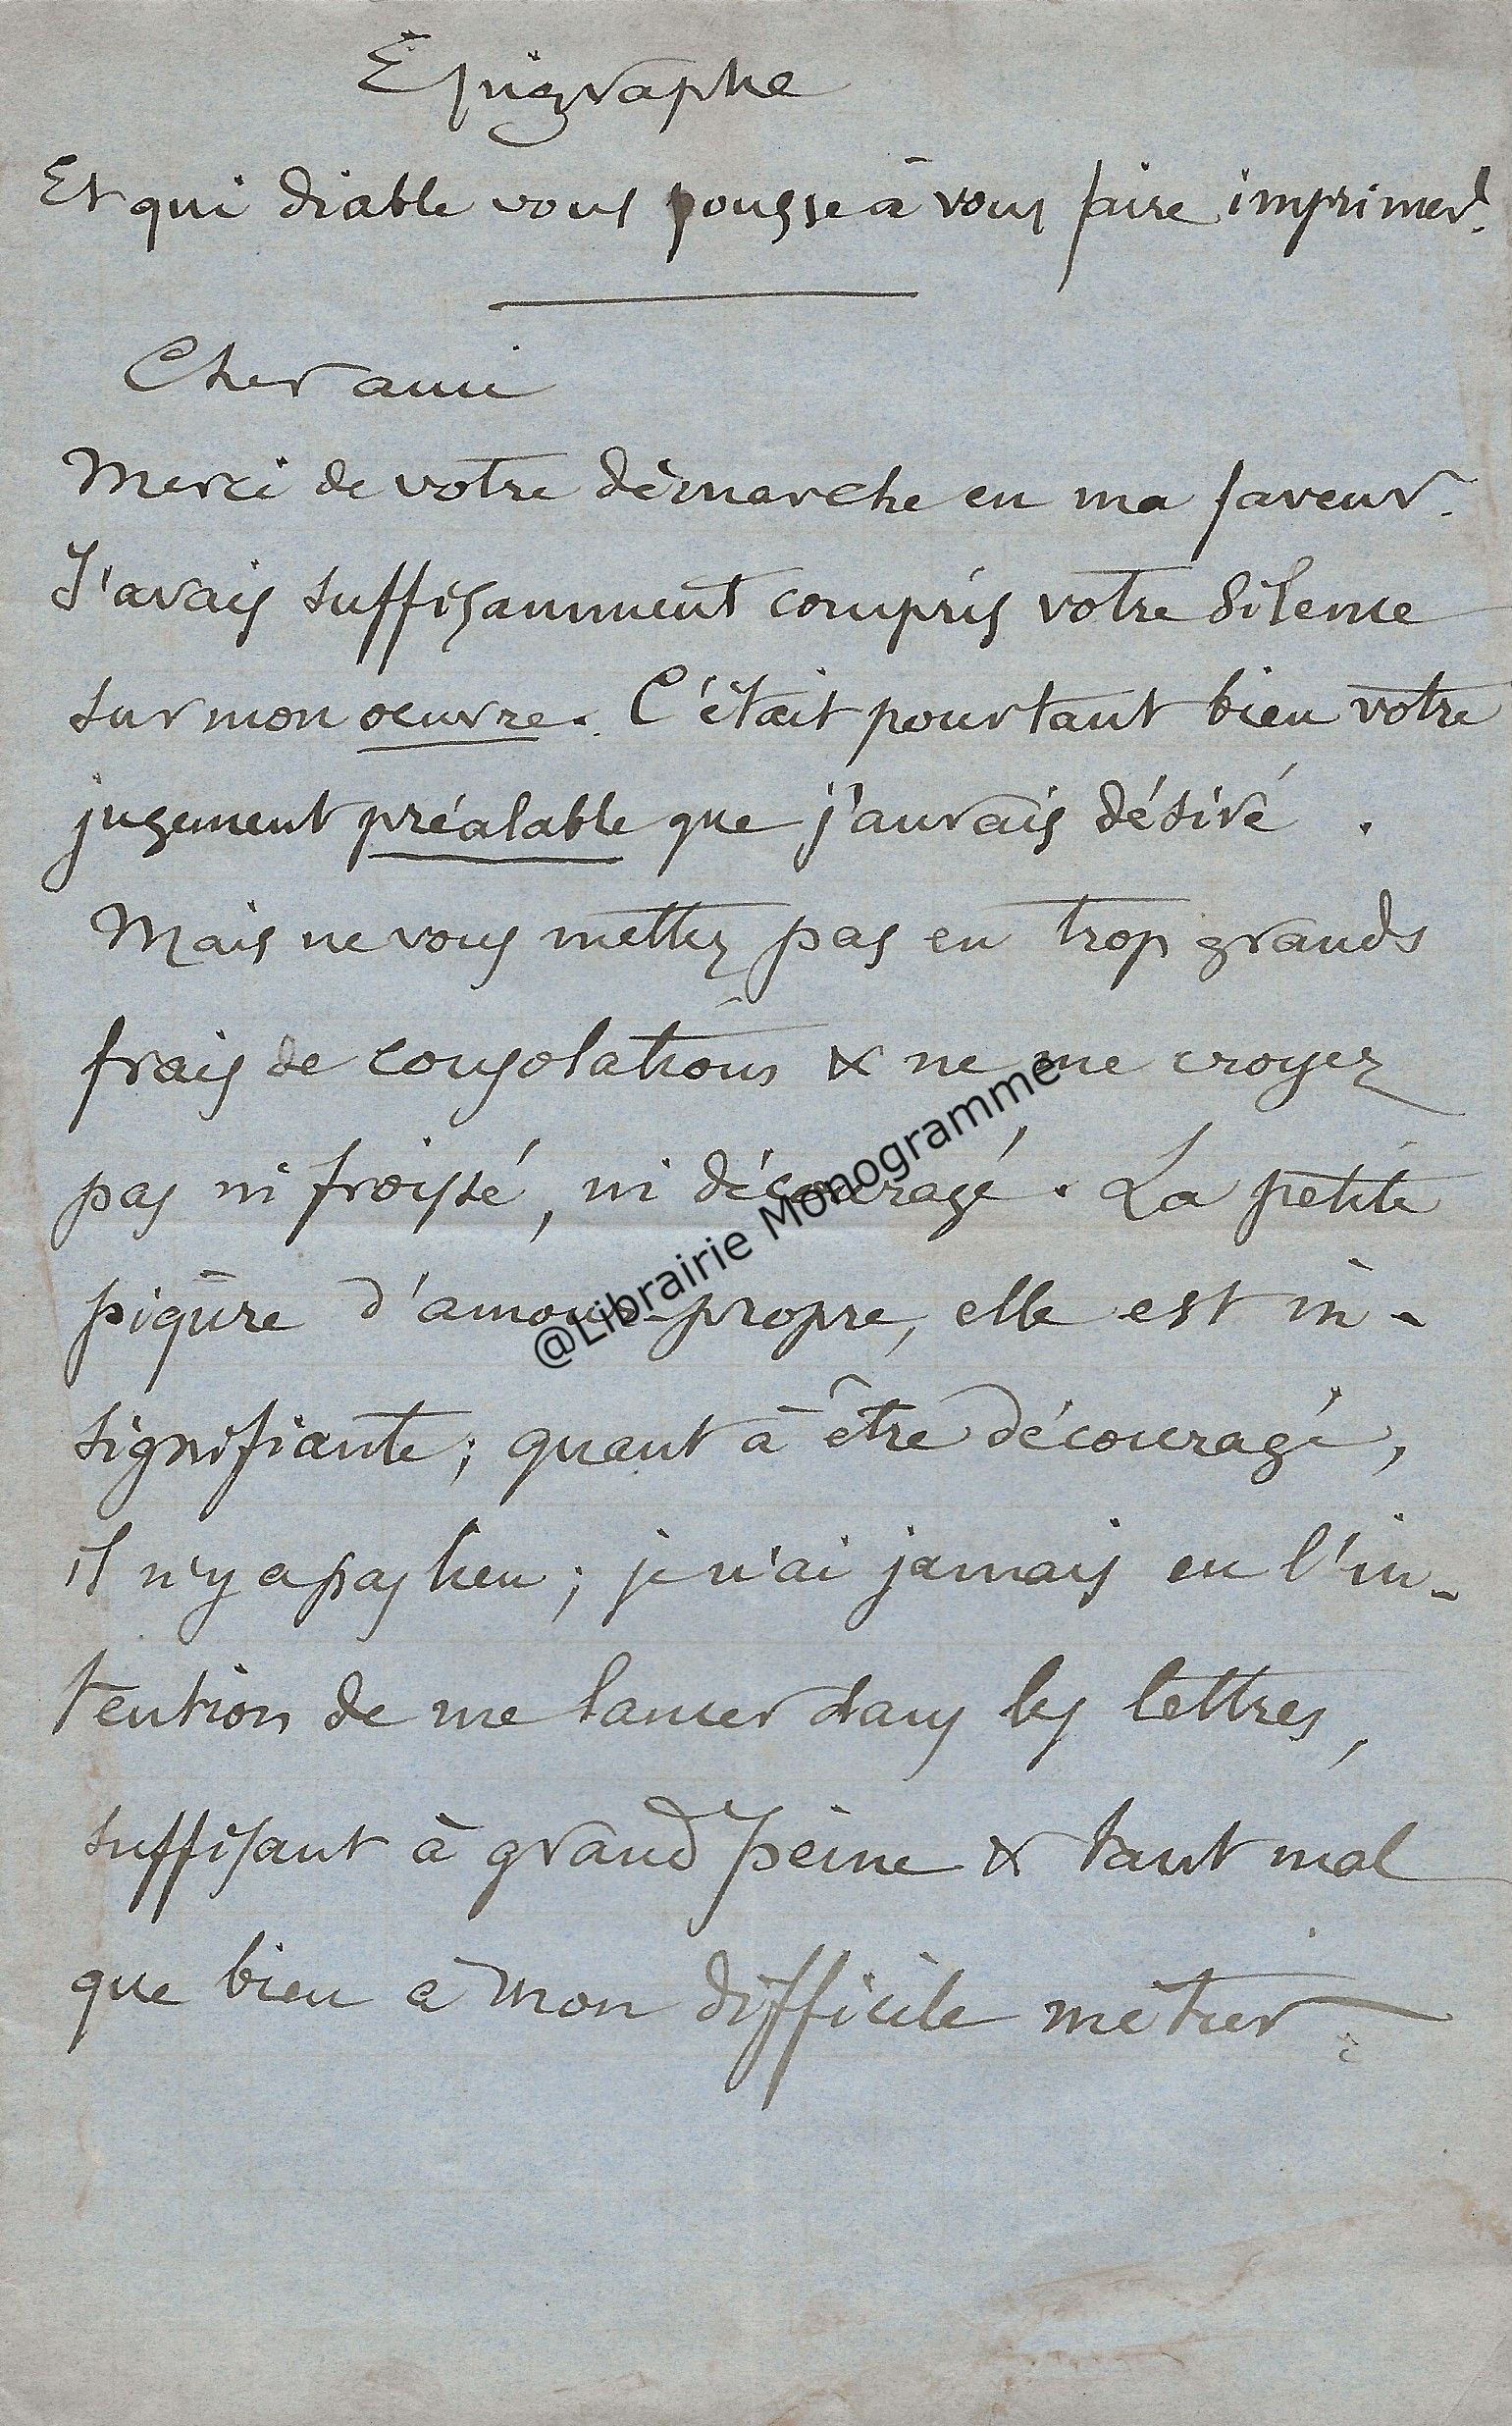 Épigraphe
Et qui diable vous pousse à vous faire imprimer ?
Cher ami
Merci de votre démarche en ma faveur.
J'avais suffisamment compris votre silence
sur mon oeuvre. C'était pourtant bien votre
jugement préalable que j'aurais désiré.
Mais ne vous mettez pas en trop grands
frais de consolations & ne me croyez
pas ni froissé, ni découragé. La petite
piqûre d'amour-propre, elle est in-
signifiante ; quant à être découragé,
il n'y a pas lieu ; je n'ai jamais eu l'in-
tention de me lancer dans les lettres,
suffisant à grand peine & tant mal
que bien à mon difficile métier.
@Librairie Monogramme